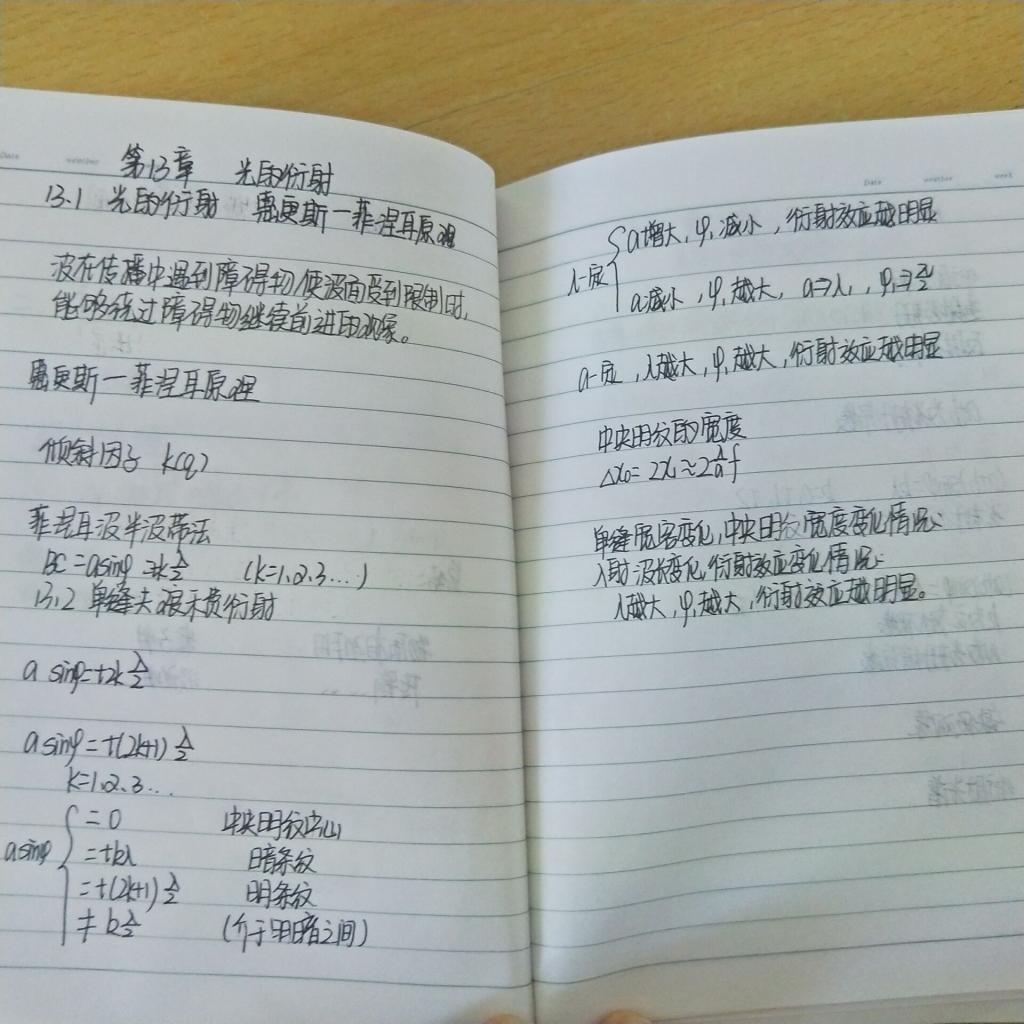 Date weather
第13章 光的衍射
13.1 光的衍射 惠更斯一菲涅耳原理
波在传播中遇到障碍物,使波面受到限制时,
能够绕过障碍物继续前进的现象。
惠更斯一菲涅耳原理
倾斜因子 k(φ)
菲涅耳波半波带法
BC=asinφ=k λ/2 (k=1,2,3…)
13.2 单缝夫琅禾费衍射
a sinφ=±2k λ/2
a sinφ=±(2k+1) λ/2
k=1,2,3…
asinφ { =0 中央明纹中心
=±kλ 暗条纹
=±(2k+1) λ/2 明条纹
≠k λ/2 (介于明暗之间)
Date weather week
λ一定 { a增大,φ₁减小,衍射效应越明显
a减小,φ₁越大,a→λ,φ₁→π/2
a一定,λ越大,φ₁越大,衍射效应越明显
中央明纹的宽度
Δx₀=2x₁≈2 λ/a f
单缝宽窄变化,中央明纹宽度变化情况:
入射波长变化,衍射效应变化情况:
λ越大,φ₁越大,衍射效应越明显。